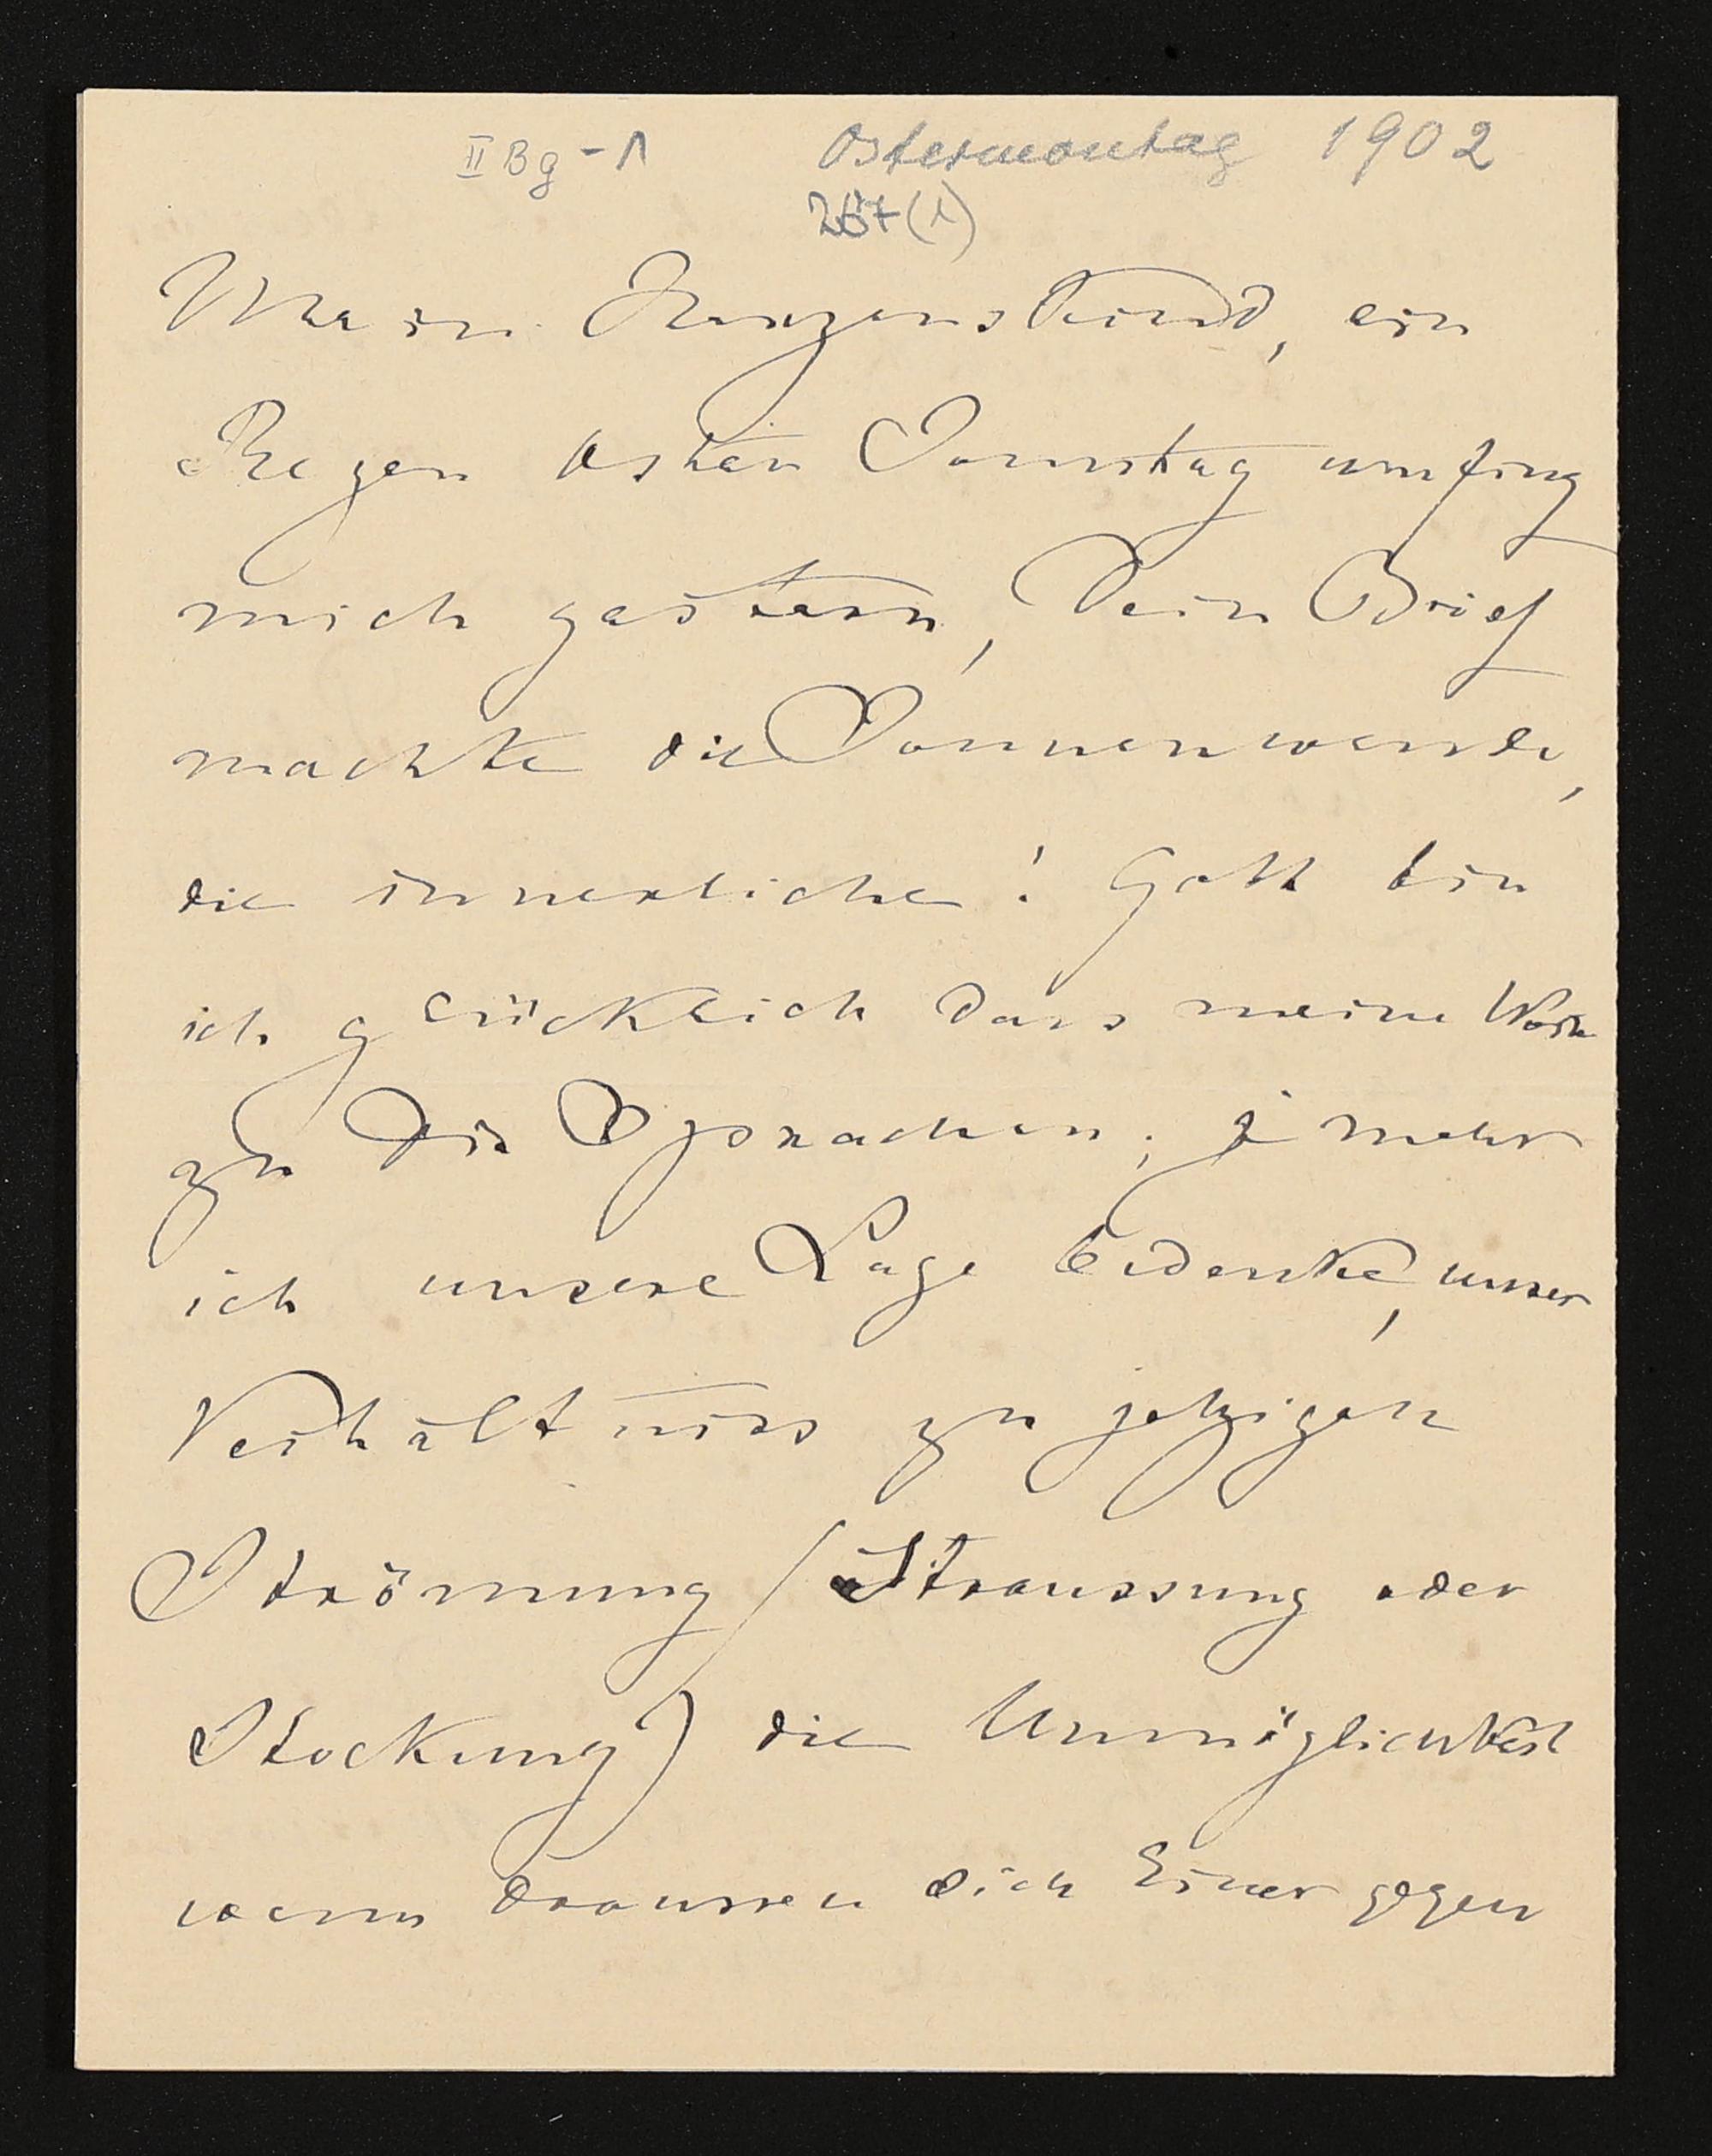 II Bg - 1 Ostermontag 1902
267(1)
Mein Herzenskind, ein
Regen Oster Sonntag umfing
mich gestern, Dein Brief
machte die Sonnenwende,
die innerliche! Gott bin
ich glücklich dass meine Worte
zu Dir Sprachen; je mehr
ich unsere Lage bedenke, unser
Verhältniss zu jetzigen
Strömung (Straussung oder
Stockung) die Unmöglichkeit
wenn draussen sich Einer gegen